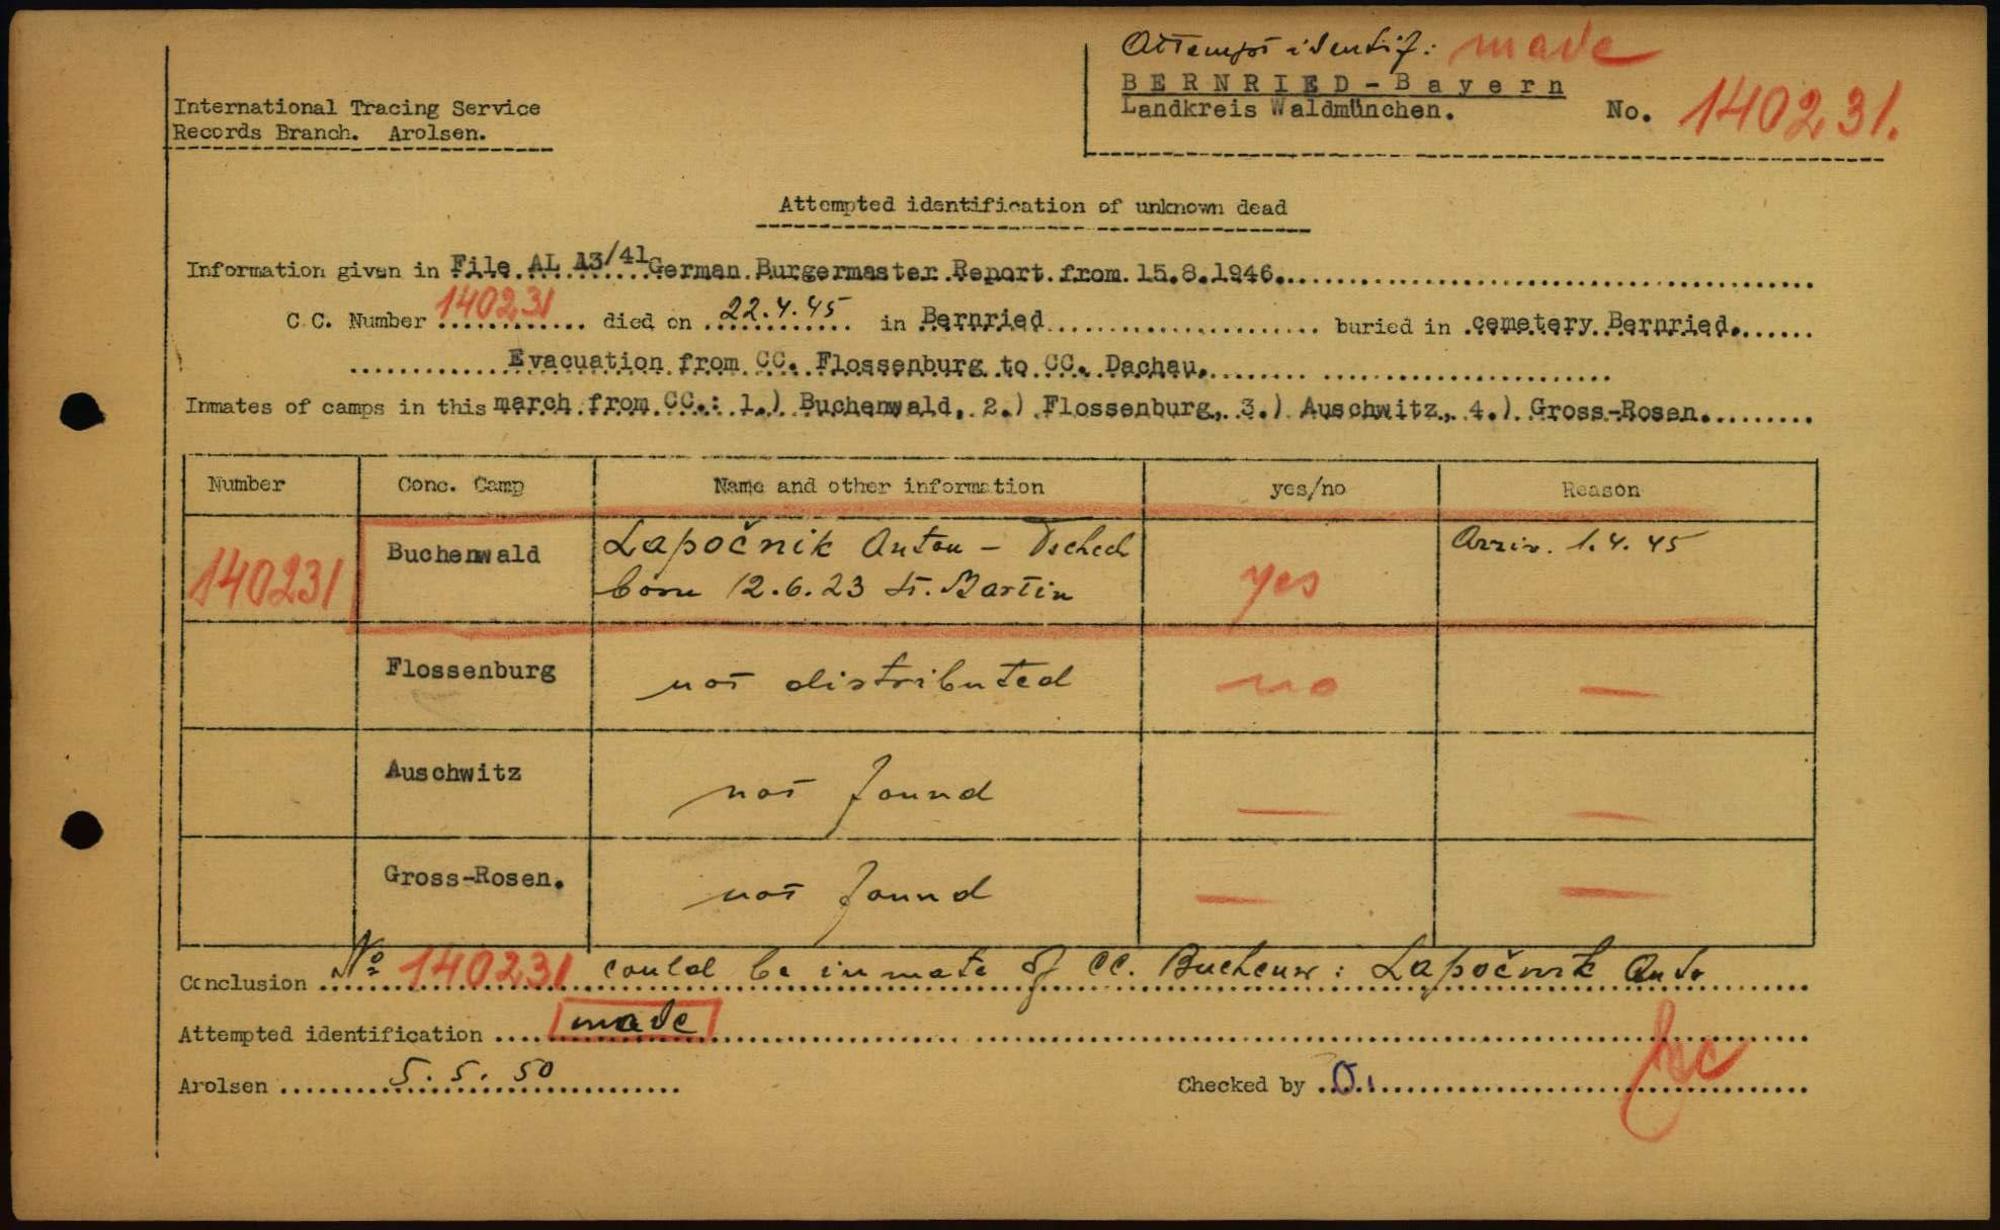 Attempt identif: made
BERNRIED-Bayern
Landkreis Waldmünchen. No. 140231.
International Tracing Service
Records Branch. Arolsen.
Attempted identification of unknown dead
Information given in File AL 13/41 German Burgermaster Report from 15.8.1946.
C.C. Number 140231 died on 22.4.45 in Bernried buried in cemetery Bernried.
Evacuation from CC. Flossenburg to CC. Dachau.
Inmates of camps in this march from CC.: 1.) Buchenwald, 2.) Flossenburg, 3.) Auschwitz, 4.) Gross-Rosen.
Number Conc. Camp Name and other information yes/no Reason
140231 Buchenwald Lapočnik Anton - Tschech yes Arriv. 1.4.45
born 12.6.23 St. Martin
Flossenburg not distributed no —
Auschwitz not found — —
Gross-Rosen. not found — —
Conclusion No 140231 could be inmate of CC. Buchenw: Lapočnik Anto
Attempted identification made
Arolsen 5.5.50 Checked by